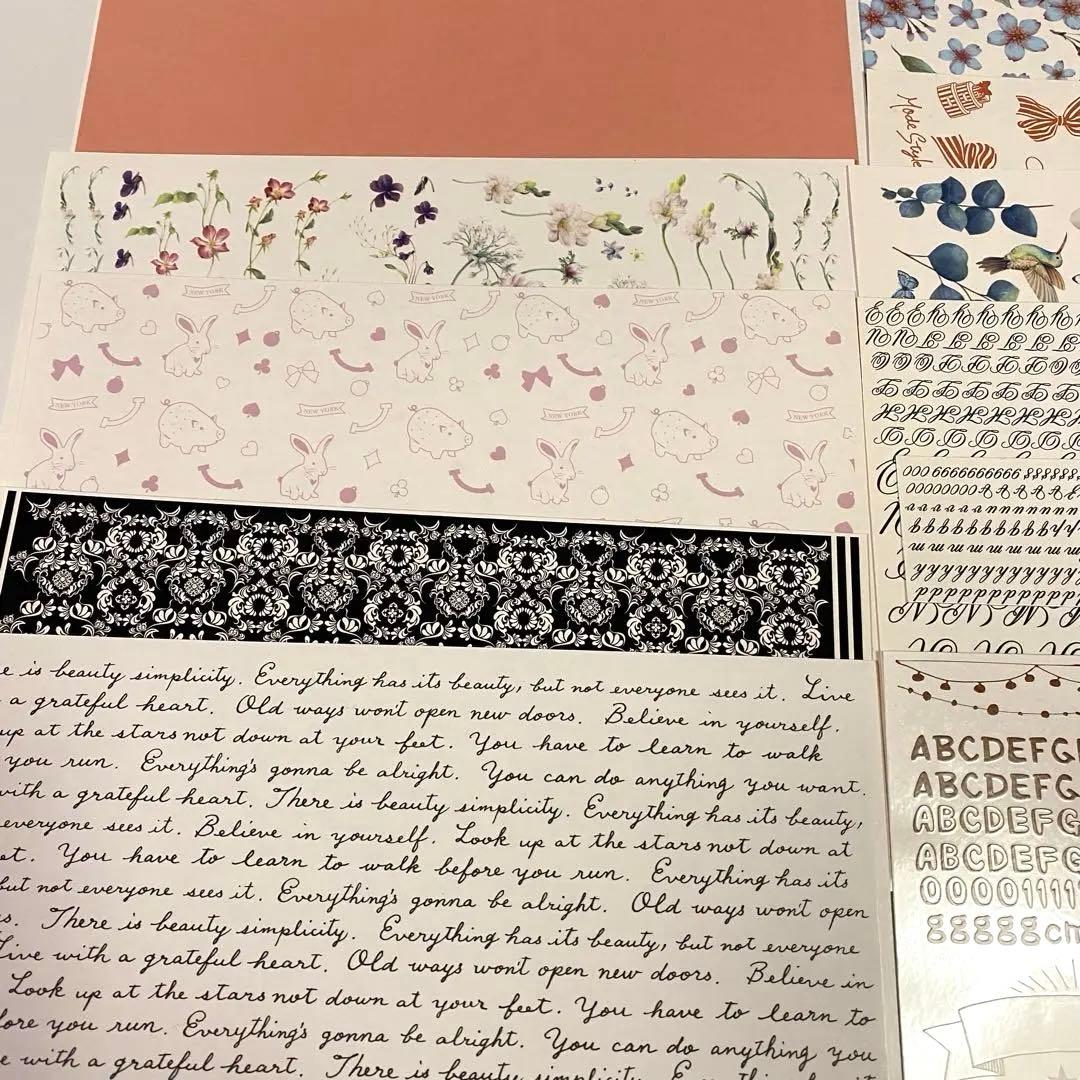 Mode Style
NEW YORK NEW YORK
NEW YORK NEW YORK NEW YORK NEW YORK
e is beauty simplicity. Everything has its beauty, but not everyone sees it. Live
a grateful heart. Old ways won't open new doors. Believe in yourself.
up at the stars not down at your feet. You have to learn to walk
you run. Everything's gonna be alright. You can do anything you want.
with a grateful heart. There is beauty simplicity. Everything has its beauty,
everyone sees it. Believe in yourself. Look up at the stars not down at
et. You have to learn to walk before you run. Everything has its
but not everyone sees it. Everything's gonna be alright. Old ways won't open
s. There is beauty simplicity. Everything has its beauty, but not everyone
Live with a grateful heart. Old ways won't open new doors. Believe in
Look up at the stars not down at your feet. You have to learn to
fore you run. Everything's gonna be alright. You can do anything you
e with a grateful heart. There is beauty simplicity.
ABCDEFG
ABCDEFG
ABCDEFG
ABCDEFG
00001111
gggggcm